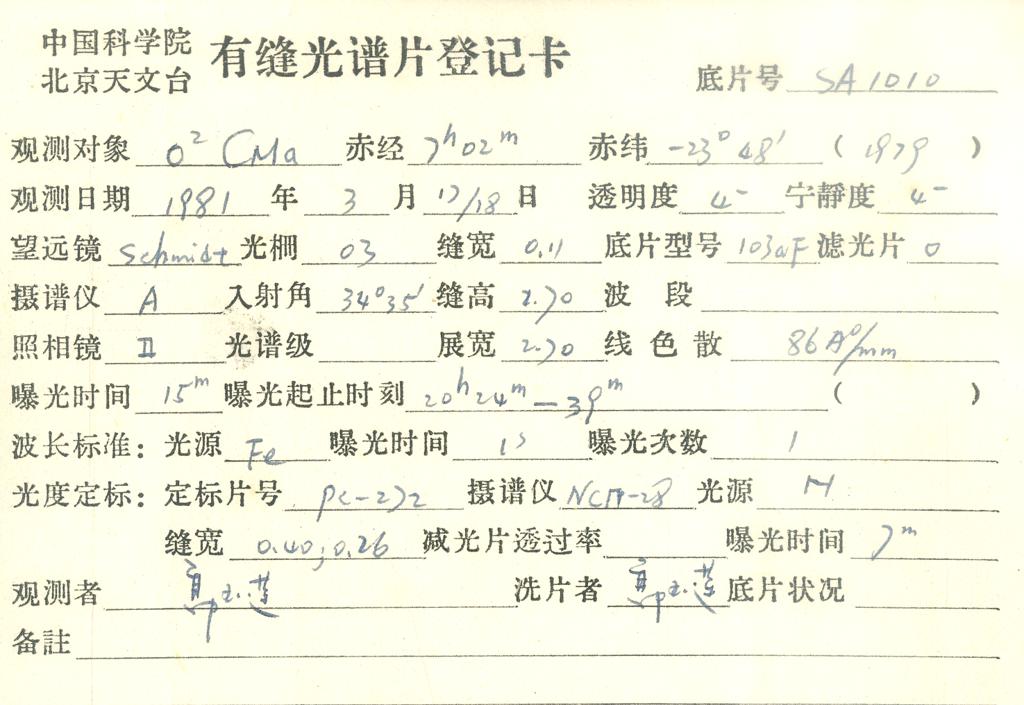 中国科学院
北京天文台 有缝光谱片登记卡 底片号 SA1010
观测对象 o² CMa 赤经 7ʰ02ᵐ 赤纬 -23°48′ ( 1979 )
观测日期 1981 年 3 月 17/18 日 透明度 4⁻ 宁静度 4⁻
望远镜 Schmidt 光栅 03 缝宽 0.11 底片型号 103aF 滤光片 0
摄谱仪 A 入射角 34°35′ 缝高 2.70 波 段
照相镜 II 光谱级 展宽 2.70 线色散 86Å/mm
曝光时间 15ᵐ 曝光起止时刻 20ʰ24ᵐ—39ᵐ ( )
波长标准: 光源 Fe 曝光时间 1ˢ 曝光次数 1
光度定标: 定标片号 PC-272 摄谱仪 光源 H
缝宽 0.40;0.26 减光片透过率 曝光时间 7ᵐ
观测者 洗片者 底片状况
备註